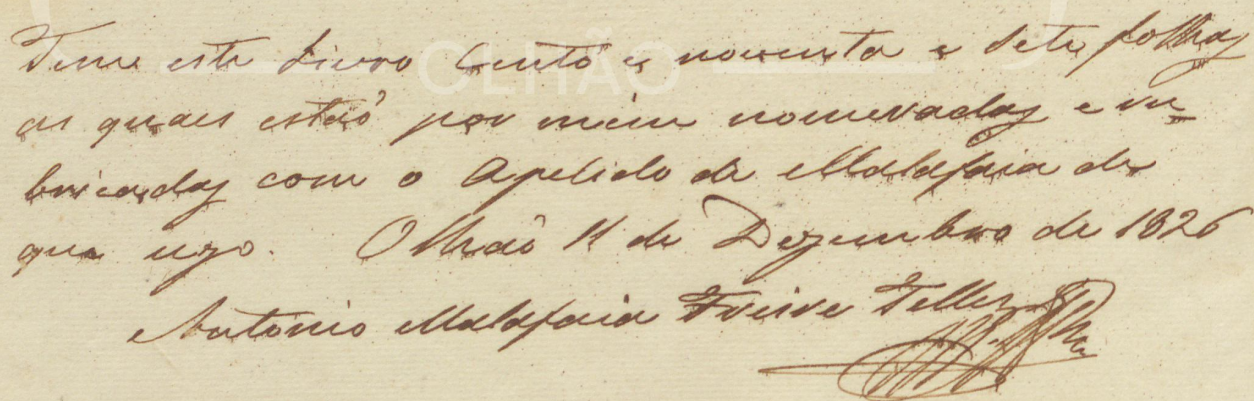 OLHÃO
Tem este Livro Cento e noventa e sete folhas
as quais estaõ por mim numeradas e ru=
bricadas com o Apelido de Malafaia de
que uzo. Olhaõ 11 de Dezembro de 1826
Antonio Malafaia Freire Telles